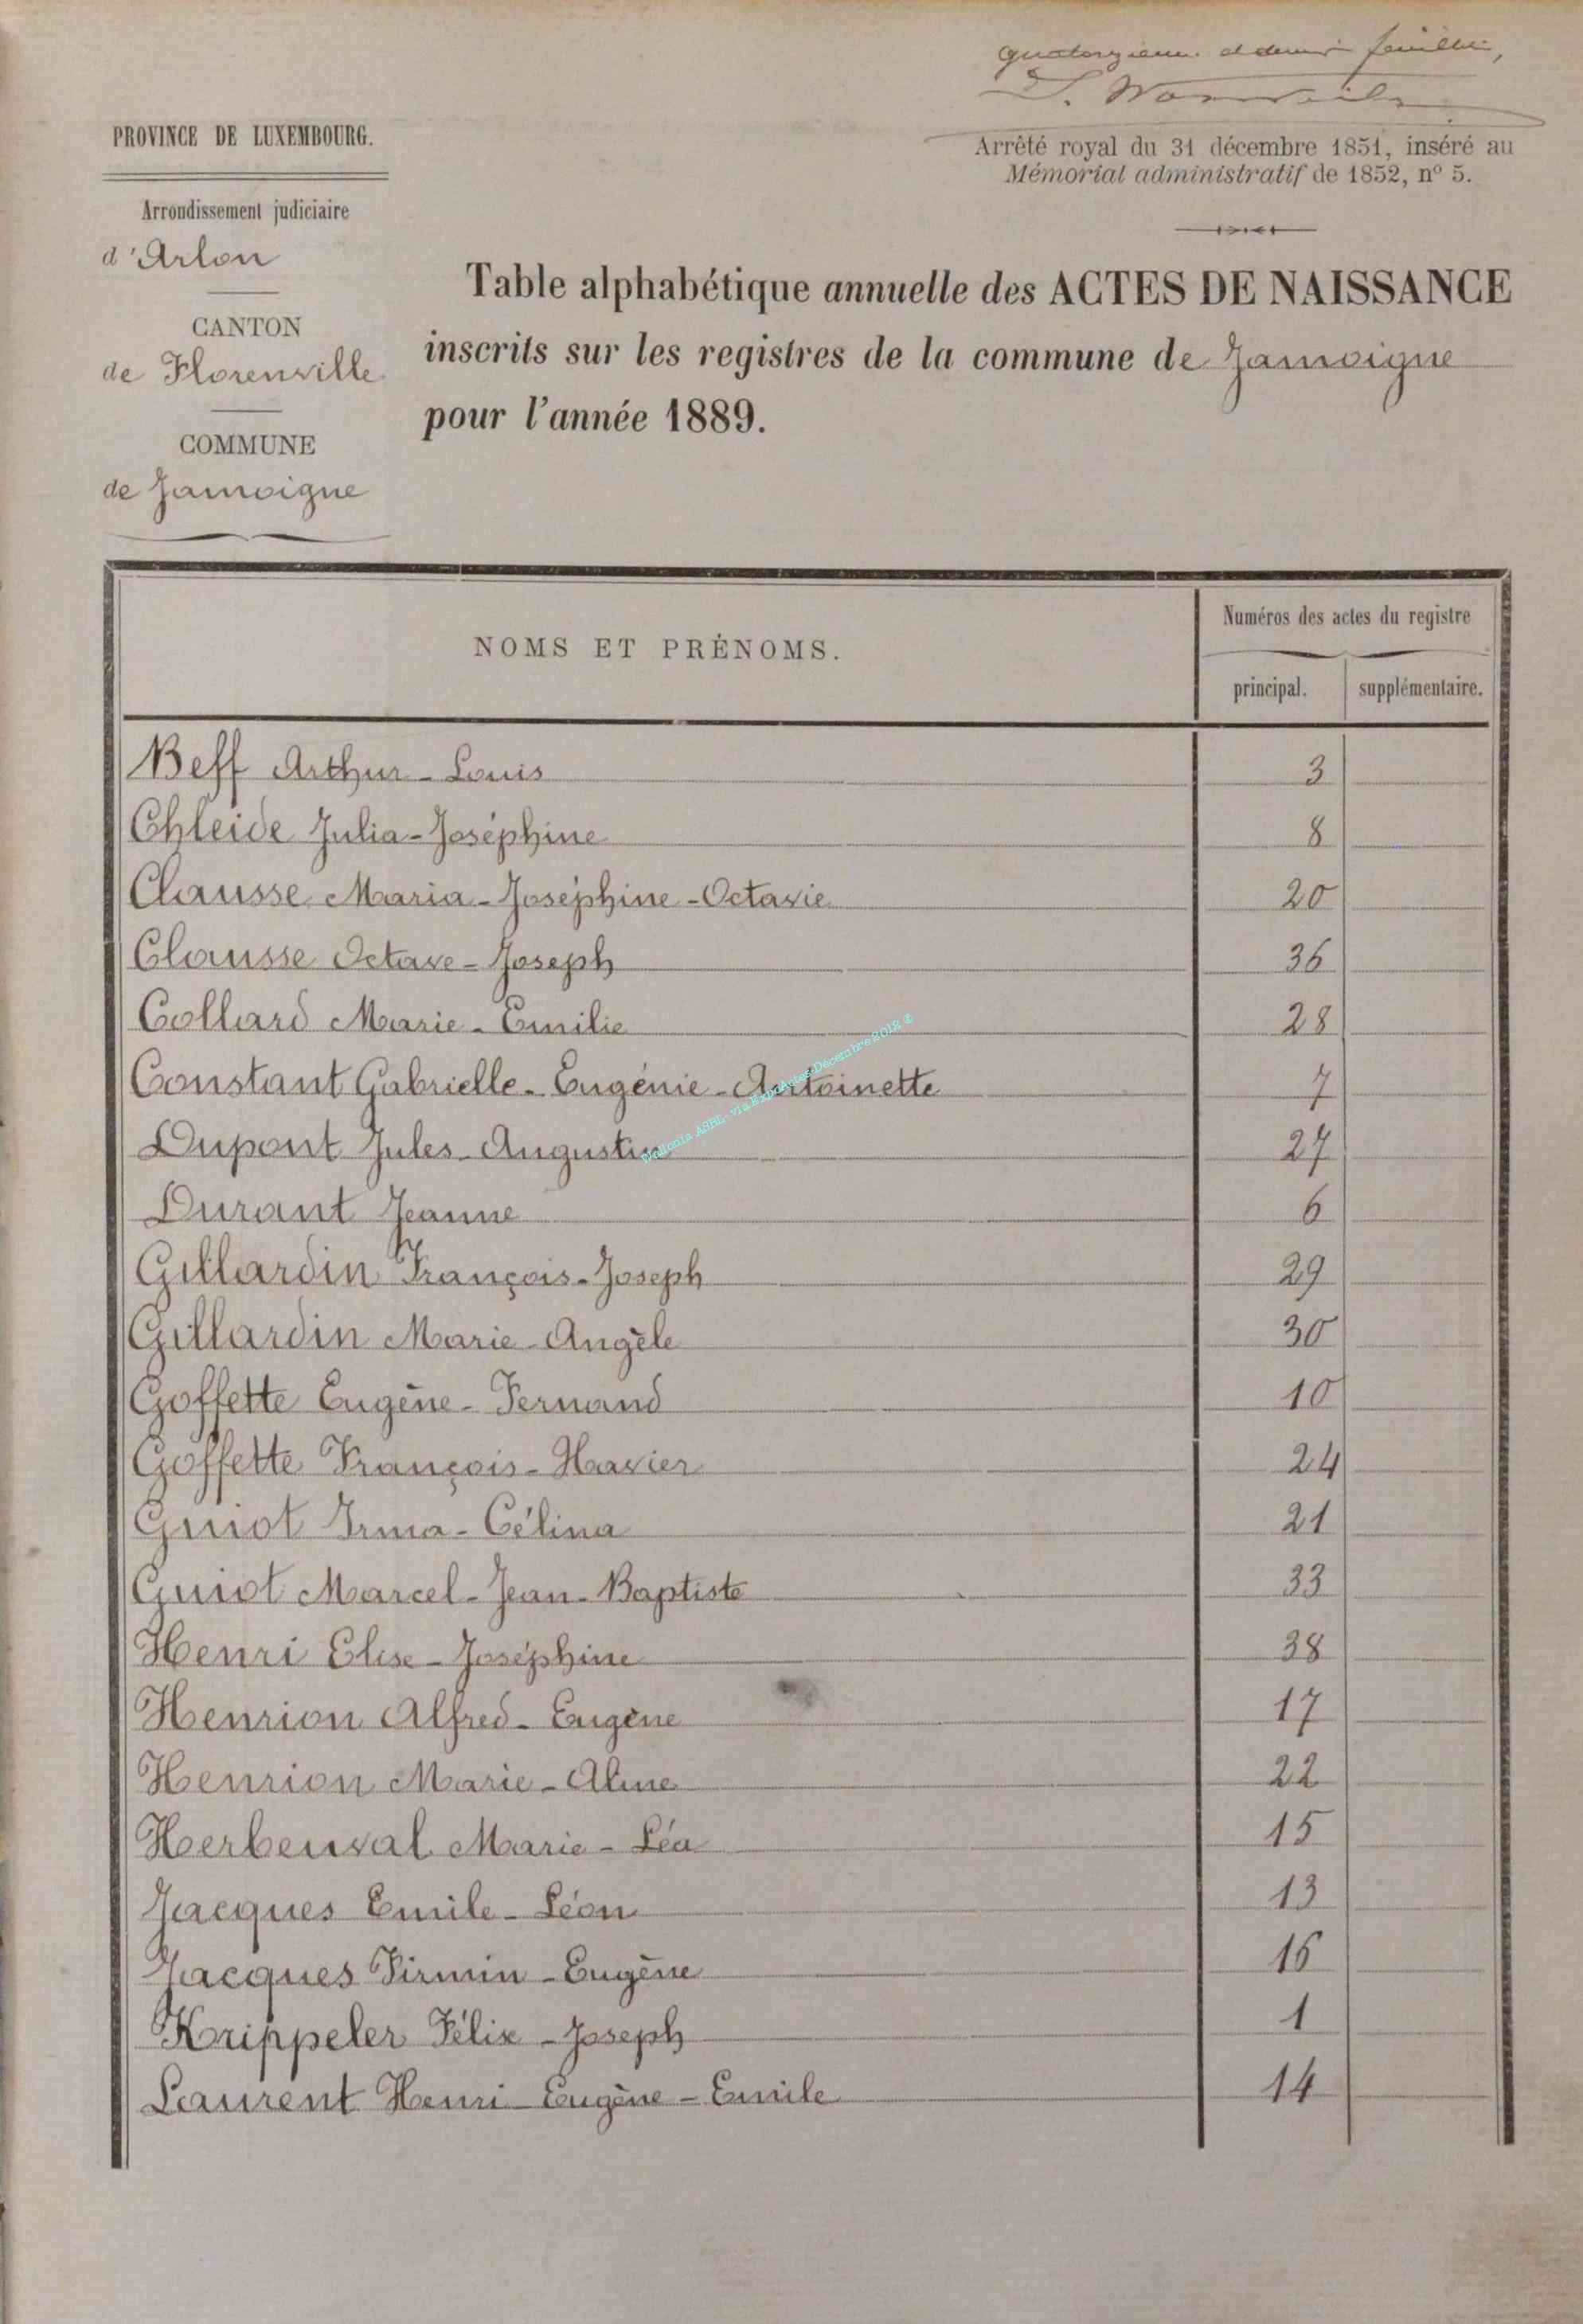 quatorzième et dernier feuillet,
PROVINCE DE LUXEMBOURG.
Arrêté royal du 31 décembre 1851, inséré au
Mémorial administratif de 1852, nº 5.
Arrondissement judiciaire
d'Arlon
CANTON
de Florenville
COMMUNE
de Jamoigne
Table alphabétique annuelle des ACTES DE NAISSANCE
inscrits sur les registres de la commune de Jamoigne
pour l'année 1889.
NOMS ET PRÉNOMS.
Numéros des actes du registre
principal. supplémentaire.
Beff Arthur-Louis 3
Chleide Julia-Joséphine 8
Clausse Maria-Joséphine-Octavie 20
Clausse Octave-Joseph 36
Collard Marie-Emilie 28
Constant Gabrielle-Eugénie-Antoinette 7
Dupont Jules-Augustin 27
Durant Jeanne 6
Gillardin François-Joseph 29
Gillardin Marie-Angèle 30
Goffette Eugène-Fernand 10
Goffette François-Xavier 24
Guiot Irma-Célina 21
Guiot Marcel-Jean-Baptiste 33
Henri Elise-Joséphine 38
Henrion Alfred-Eugène 17
Henrion Marie-Aline 22
Herbeuval Marie-Léa 15
Jacques Emile-Léon 13
Jacques Firmin-Eugène 16
Krippeler Félix-Joseph 1
Laurent Henri-Eugène-Emile 14
Wallonia ASBL- via ExpoActes-Décembre 2012 ©